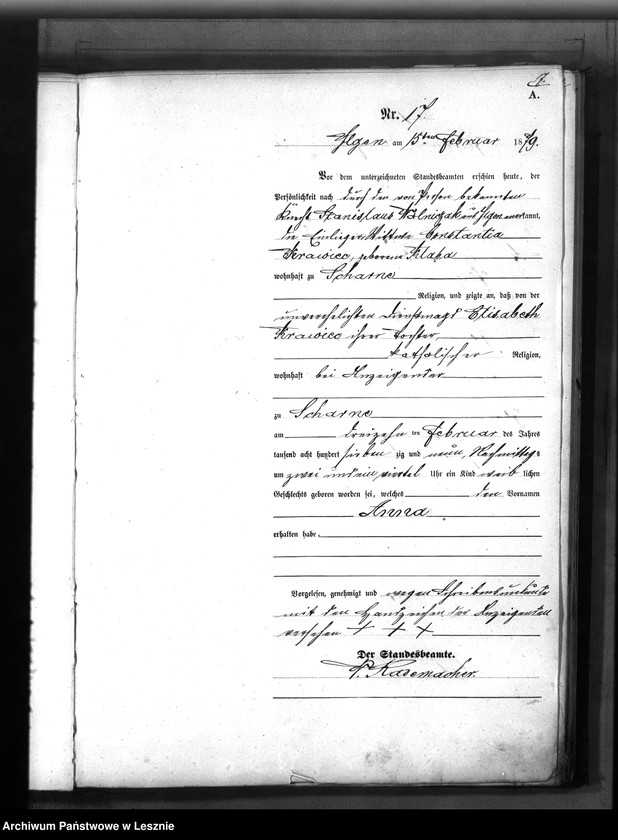 7
A.
Nr. 17.
Ilgen am 15ten Februar 1879.
Vor dem unterzeichneten Standesbeamten erschien heute, der
Persönlichkeit nach durch den von Person bekannten
Knecht Stanislaus Wolniczak aus Ilgen anerkannt,
die Einlieger Wittwe Constantia
Krawiec, geborene Klaba
wohnhaft zu Scharne
Religion, und zeigte an, daß von der
unverehelichten Dienstmagd Elisabeth
Krawiec ihrer Tochter,
katholischer Religion,
wohnhaft bei Anzeigender
zu Scharne
am dreizehn ten Februar des Jahres
tausend acht hundert sieben zig und neun, Nachmittags
um zwei und ein viertel Uhr ein Kind weib lichen
Geschlechts geboren worden sei, welches den Vornamen
Anna
erhalten habe.
Vorgelesen, genehmigt und wegen Schreibensunkunde
mit den Handzeichen der Anzeigenden
versehen + + +
Der Standesbeamte.
Rademacher.
Archiwum Państwowe w Lesznie